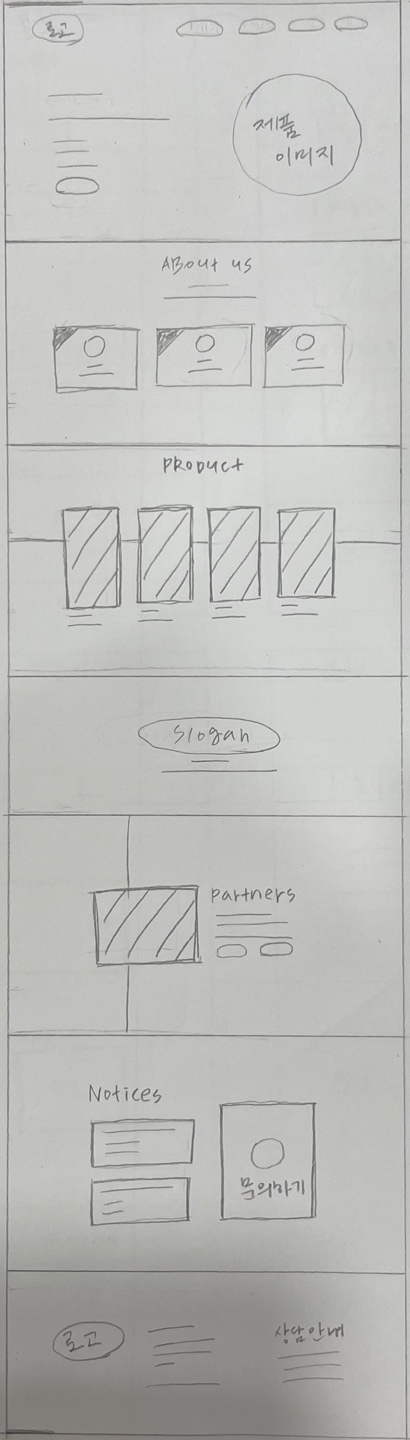 로고
제품
이미지
ABout us
PRODUCT
Slogan
partners
Notices
문의하기
로고
상담안내